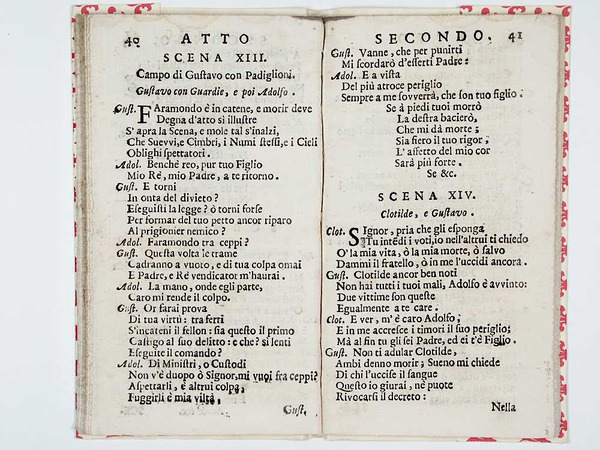 40 ATTO
SCENA XIII.
Campo di Gustavo con Padiglioni.
Gustavo con Guardie, e poi Adolfo.
Gust. Faramondo è in catene, e morir deve
Degna d'atto sì illustre
S' apra la Scena, e mole tal s'inalzi,
Che Suevvi, e Cimbri, i Numi stessi, e i Cieli
Oblighi spettatori.
Adol. Benchè reo, pur tuo Figlio
Mio Rè, mio Padre, a te ritorno.
Gust. E torni
In onta del divieto?
Eseguisti la legge? ò torni forse
Per formar del tuo petto ancor riparo
Al prigionier nemico?
Adol. Faramondo tra ceppi?
Gust. Questa volta le trame
Cadranno a vuoto, e di tua colpa omai
E Padre, e Rè vendicator m'haurai.
Adol. La mano, onde egli parte,
Caro mi rende il colpo.
Gust. Or farai prova
Di tua virtù: tra ferri
S'incateni il fellon: sia questo il primo
Castigo al suo delitto: e che? si lenti
Eseguite il comando?
Adol. Di Ministri, o Custodi
Non v'è duopo ò Signor, mi vuoi fra ceppi?
Aspettarli, è altrui colpa;
Fuggirli è mia viltà.
Gust.
SECONDO. 41
Gust. Vanne, che per punirti
Mi scordarò d'esserti Padre.
Adol. E a vista
Del più atroce periglio
Sempre a me sovverrà, che son tuo figlio.
Se à piedi tuoi morrò
La destra bacierò,
Che mi dà morte;
Sia fiero il tuo rigor,
L' affetto del mio cor
Sarà più forte.
Se &c.
SCENA XIV.
Clotilde, e Gustavo.
Clot. Signor, pria che gli esponga
Tu intēdi i voti, io nell'altrui ti chiedo
O' la mia vita, ò la mia morte, ò salvo
Dammi il fratello, ò in me l'uccidi ancora.
Gust. Clotilde ancor ben noti
Non hai tutti i tuoi mali, Adolfo è avvinto:
Due vittime son queste
Egualmente a te care.
Clot. E ver, m' è caro Adolfo;
E in me accresce i timori il suo periglio;
Mà al fin tu gli sei Padre, ed ei t'è Figlio.
Gust. Non ti adular Clotilde,
Ambi denno morir; Sueno mi chiede
Di chi l'uccise il sangue
Questo io giurai, nè puote
Rivocarsi il decreto:
Nella